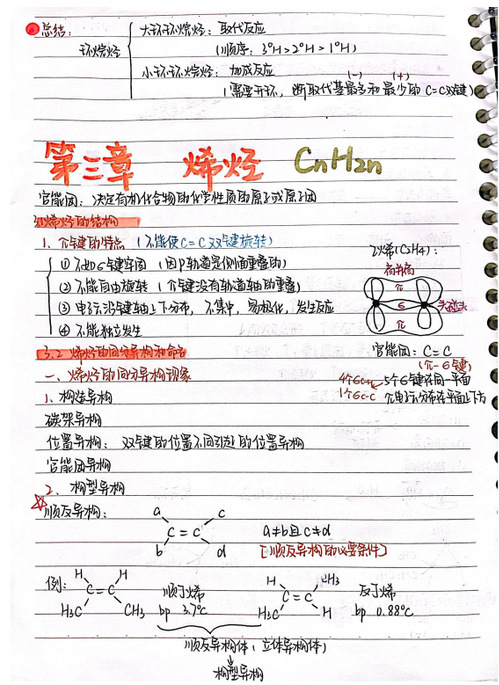 总结：
环烷烃
大环环烷烃：取代反应
（顺序：3°H>2°H>1°H）
小环环烷烃：加成反应
(-) (+)
（需要开环，断取代基最多和最少的C=C双键）
第三章 烯烃 CnH2n
官能团：决定有机化合物的化学性质的原子或原子团
3.1烯烃的结构
1、π键的特点（不能使C=C双键旋转）
①不如σ键牢固（因P轨道是侧面重叠的）
②不能自由旋转（π键没有轨道轴的重叠）
③电子云沿键轴上下分布，不集中，易极化，发生反应
④不能独立发生
乙烯(C2H4)：
肩并肩
π
σ
头碰头
π
官能团：C=C
(π-σ键)
3.2 烯烃的同分异构和命名
一、烯烃的同分异构现象
4个σC-H
1个σC-C
5个σ键在同一平面
π电子云分布在平面上下方
1、构造异构
碳架异构
位置异构：双键的位置不同引起的位置异构
官能团异构
2、构型异构
顺反异构：
a c
C=C
b d
a≠b且c≠d
[顺反异构的必要条件]
例：
H H
C=C
H3C CH3
顺丁烯
bp 3.7℃
H CH3
C=C
H3C H
反丁烯
bp 0.88℃
顺反异构体（立体异构体）
构型异构